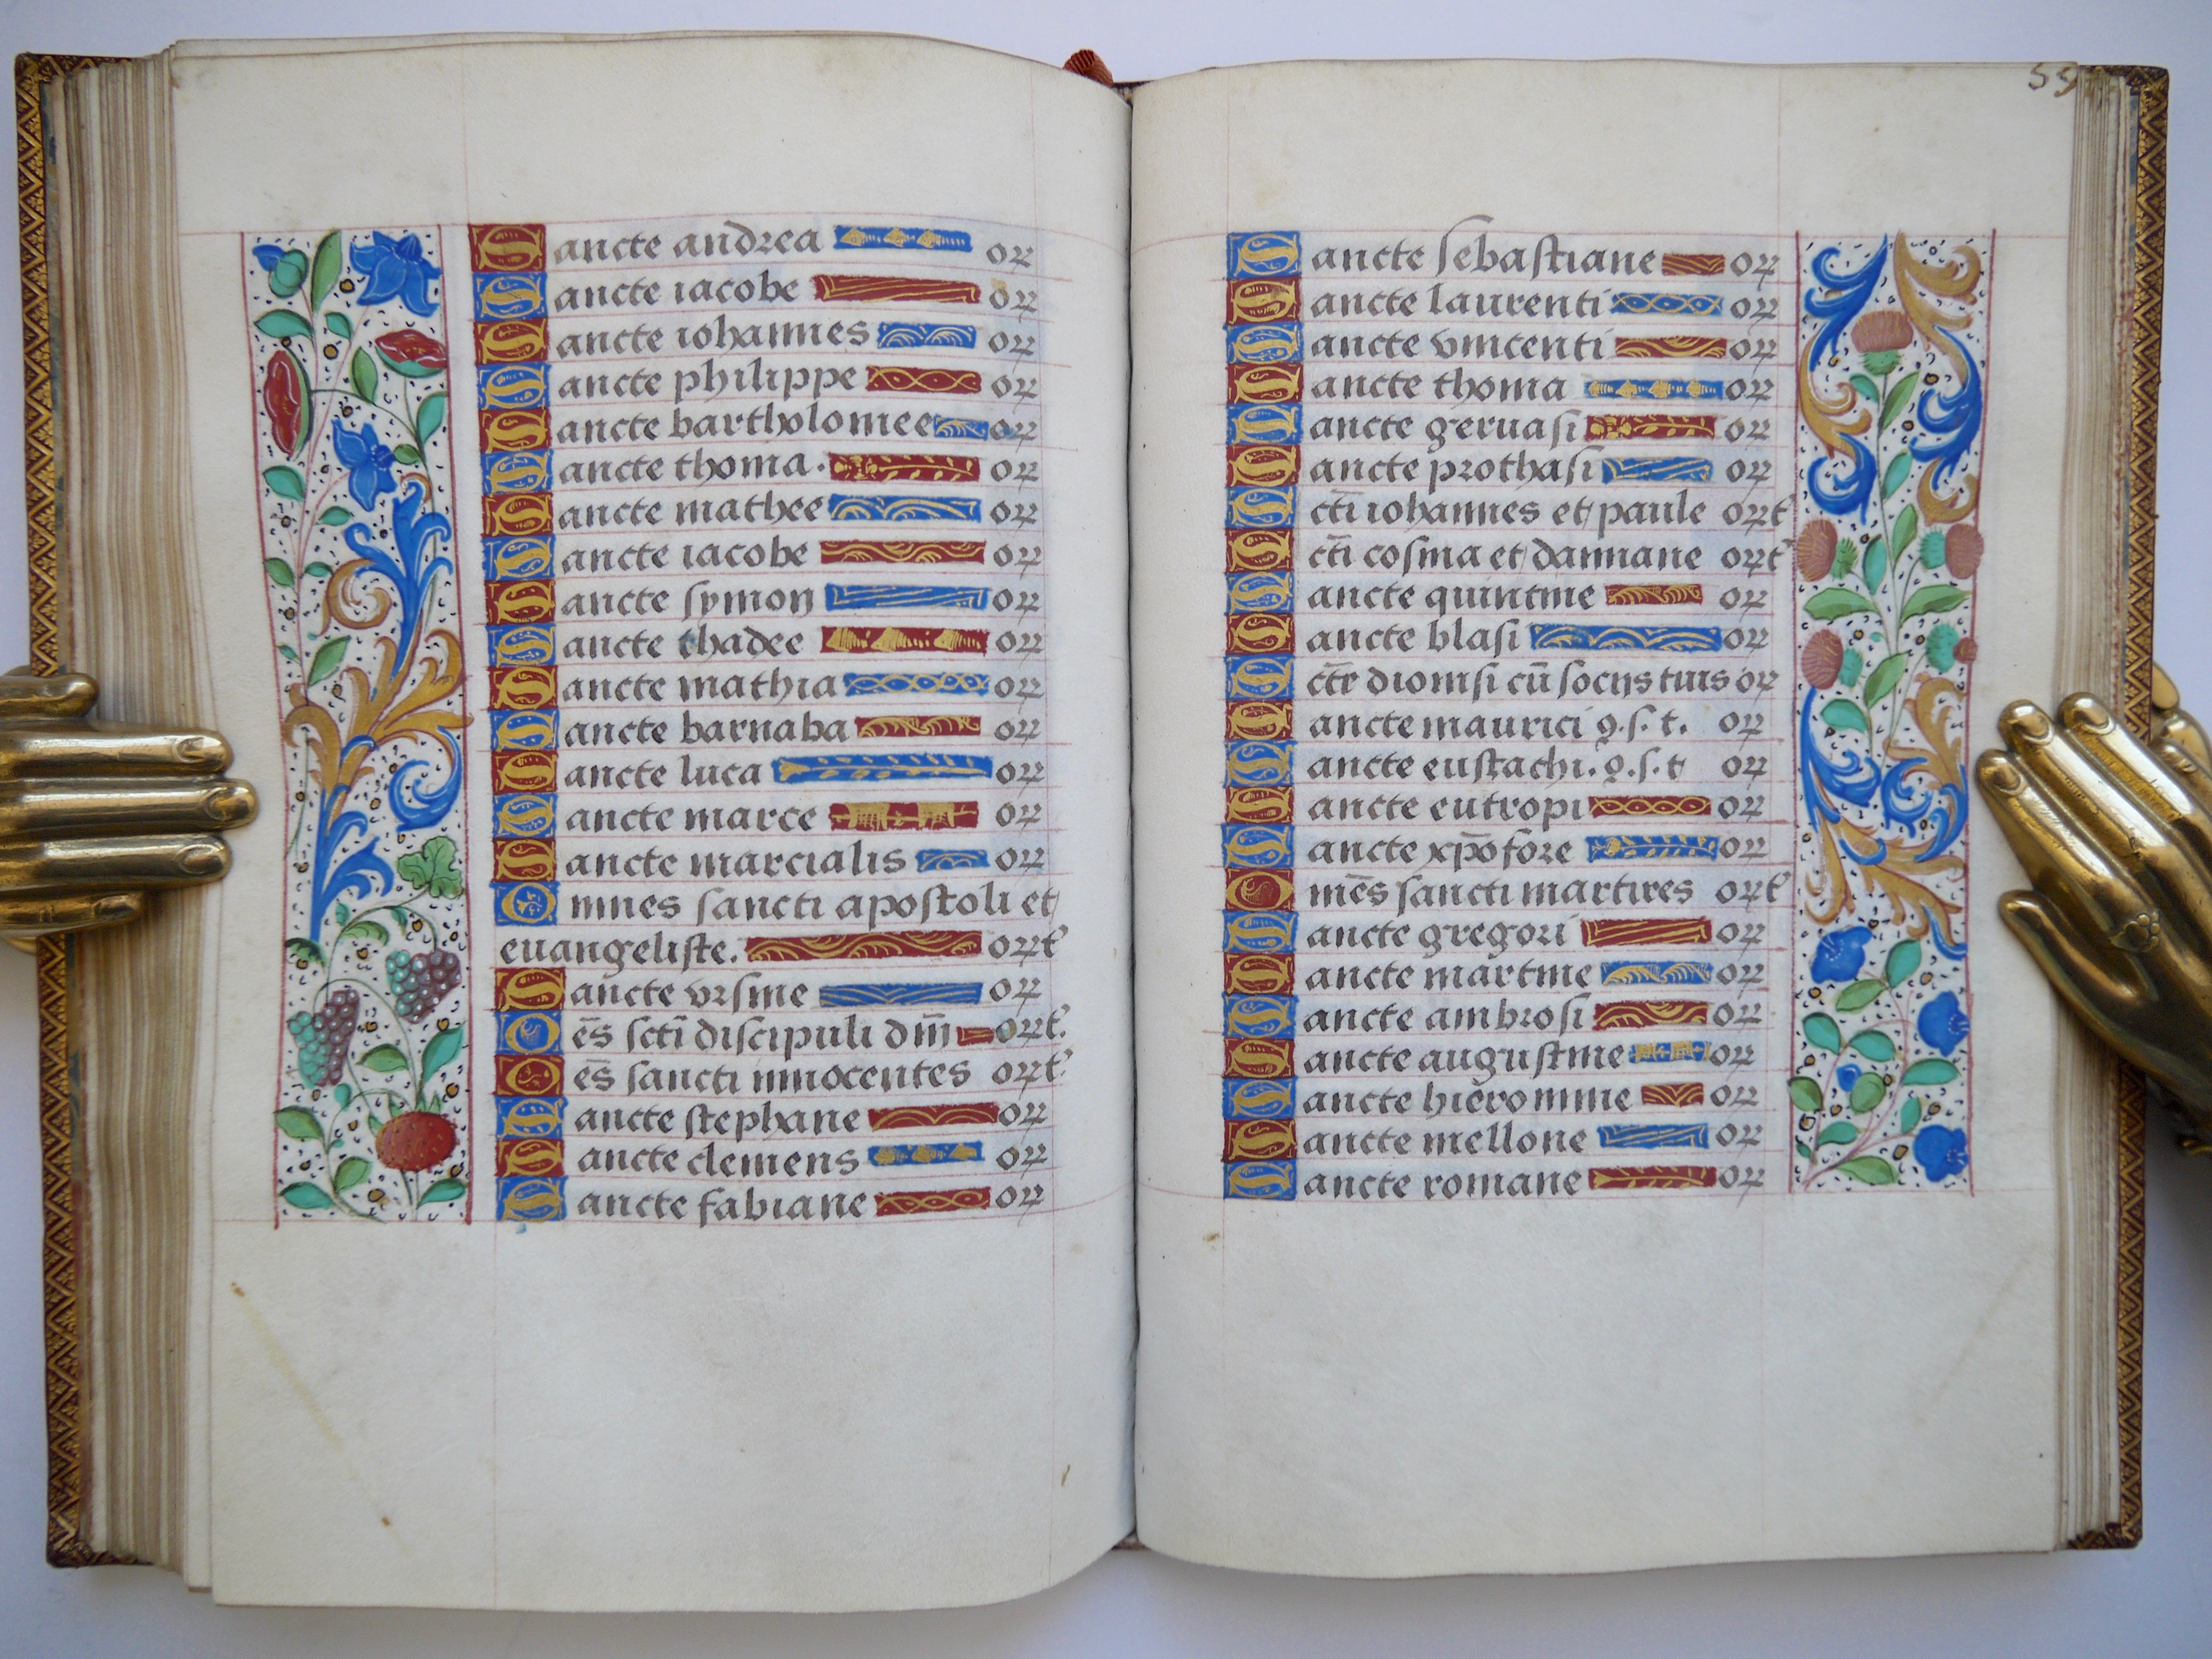 Sancte andrea or
Sancte iacobe or
Sancte iohannes or
Sancte philippe or
Sancte bartholomee or
Sancte thoma. or
Sancte mathee or
Sancte iacobe or
Sancte symon or
Sancte thadee or
Sancte mathia or
Sancte barnaba or
Sancte luca or
Sancte marce or
Sancte marcialis or
Omnes sancti apostoli et
euangeliste. ort'
Sancte vrsine or
Oēs sctī discipuli dm̄ ort'.
Oēs sancti innocentes ort'.
Sancte stephane or
Sancte clemens or
Sancte fabiane or
55
Sancte sebastiane or
Sancte laurenti or
Sancte vincenti or
Sancte thoma or
Sancte geruasi or
Sancte prothasi or
Sctī iohannes et paule ort'
Sctī cosma et damiane ort'
Sancte quintine or
Sancte blasi or
Sctē dionisi cū socijs tuis or
Sancte maurici 9.s.t. or
Sancte eustachi.9.s.t or
Sancte eutropi or
Sancte xp̄ofore or
Omēs sancti martires ort'
Sancte gregori or
Sancte martine or
Sancte ambrosi or
Sancte augustine or
Sancte hieronime or
Sancte mellone or
Sancte romane or